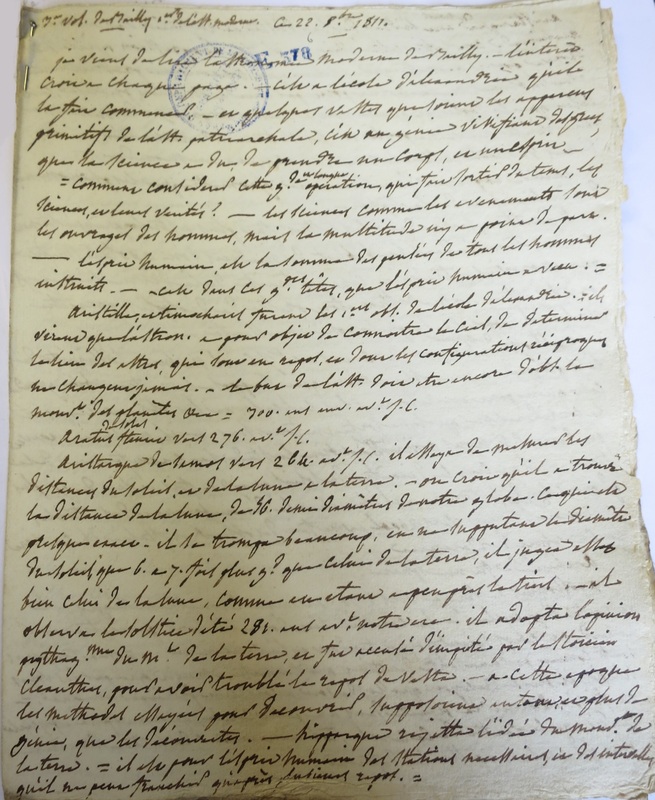 3e vol. de Bailly 1er de l'ast. moderne. Ce 22. 8bre 1811.
F 578
je viens de lire l'astronomie moderne de Bailly. - l'intérêt
croit a chaque page. - c'est a l'école d'alexandrie qu'il
la fait commencer - et quelques vastes que soient les apperçus
primitifs de l'ast. patriarchale, c'est au génie vivifiant des grecs
que la science a du, de prendre un corps, et un esprit -
= comment considerer cette gde et longue opération, qui fait sortir du tems, les
sciences, et leurs vérités? - les sciences comme les evenements sont
les ouvrages des hommes, mais la multitude n'y a point de part.
- l'esprit humain, est la somme des pensées de tous les hommes
instruits. - c'est dans ces gdes têtes, que l'esprit humain a vécu. =
Aristille, et timocharis furent les 1ers obs. de l'école d'alexandrie. ils
virent que l'astron. a pour objet de connoitre le ciel, de determiner
le lieu des astres, qui sont en repos, et dont les configurations réciproques
ne changent jamais. - le but de l'ast. doit etre encore d'obs. le
mouvt. des planètes = 300. ans env. avt. j.C.
Aratus de soles fleurit vers 276. avt. j.C.
Aristarque de Samos vers 264. avt. j.C. il essaya de mesurer les
distances du soleil, et de la lune a la terre. - on croit qu'il a trouvé
la distance de la lune, de 56. demi diamètres de notre globe. ce qui est
presque exact - il se trompa beaucoup, en ne supputant le diamètre
du soleil, que 6. a 7. fois plus gd. que celui de la terre, il jugea assez
bien celui de la lune, comme en etant a peu près le tiers. - il
observa le solstice d'été 281. ans avt. notre ere. il adopta l'opinion
pythag.nne du mt. de la terre, et fut accusé d'impiété par le stoicien
Cleanthes, pour avoir troublé le repos de Vesta. - a cette epoque
les methodes essayées pour découvrir, supposoient autant, et plus de
génie, que les découvertes. - hipparque rejetta l'idée du mouvt. de
la terre. = il est pour l'esprit humain des stations necessaires, et des intervalles
qu'il ne peut franchir qu'après plusieurs repos. =